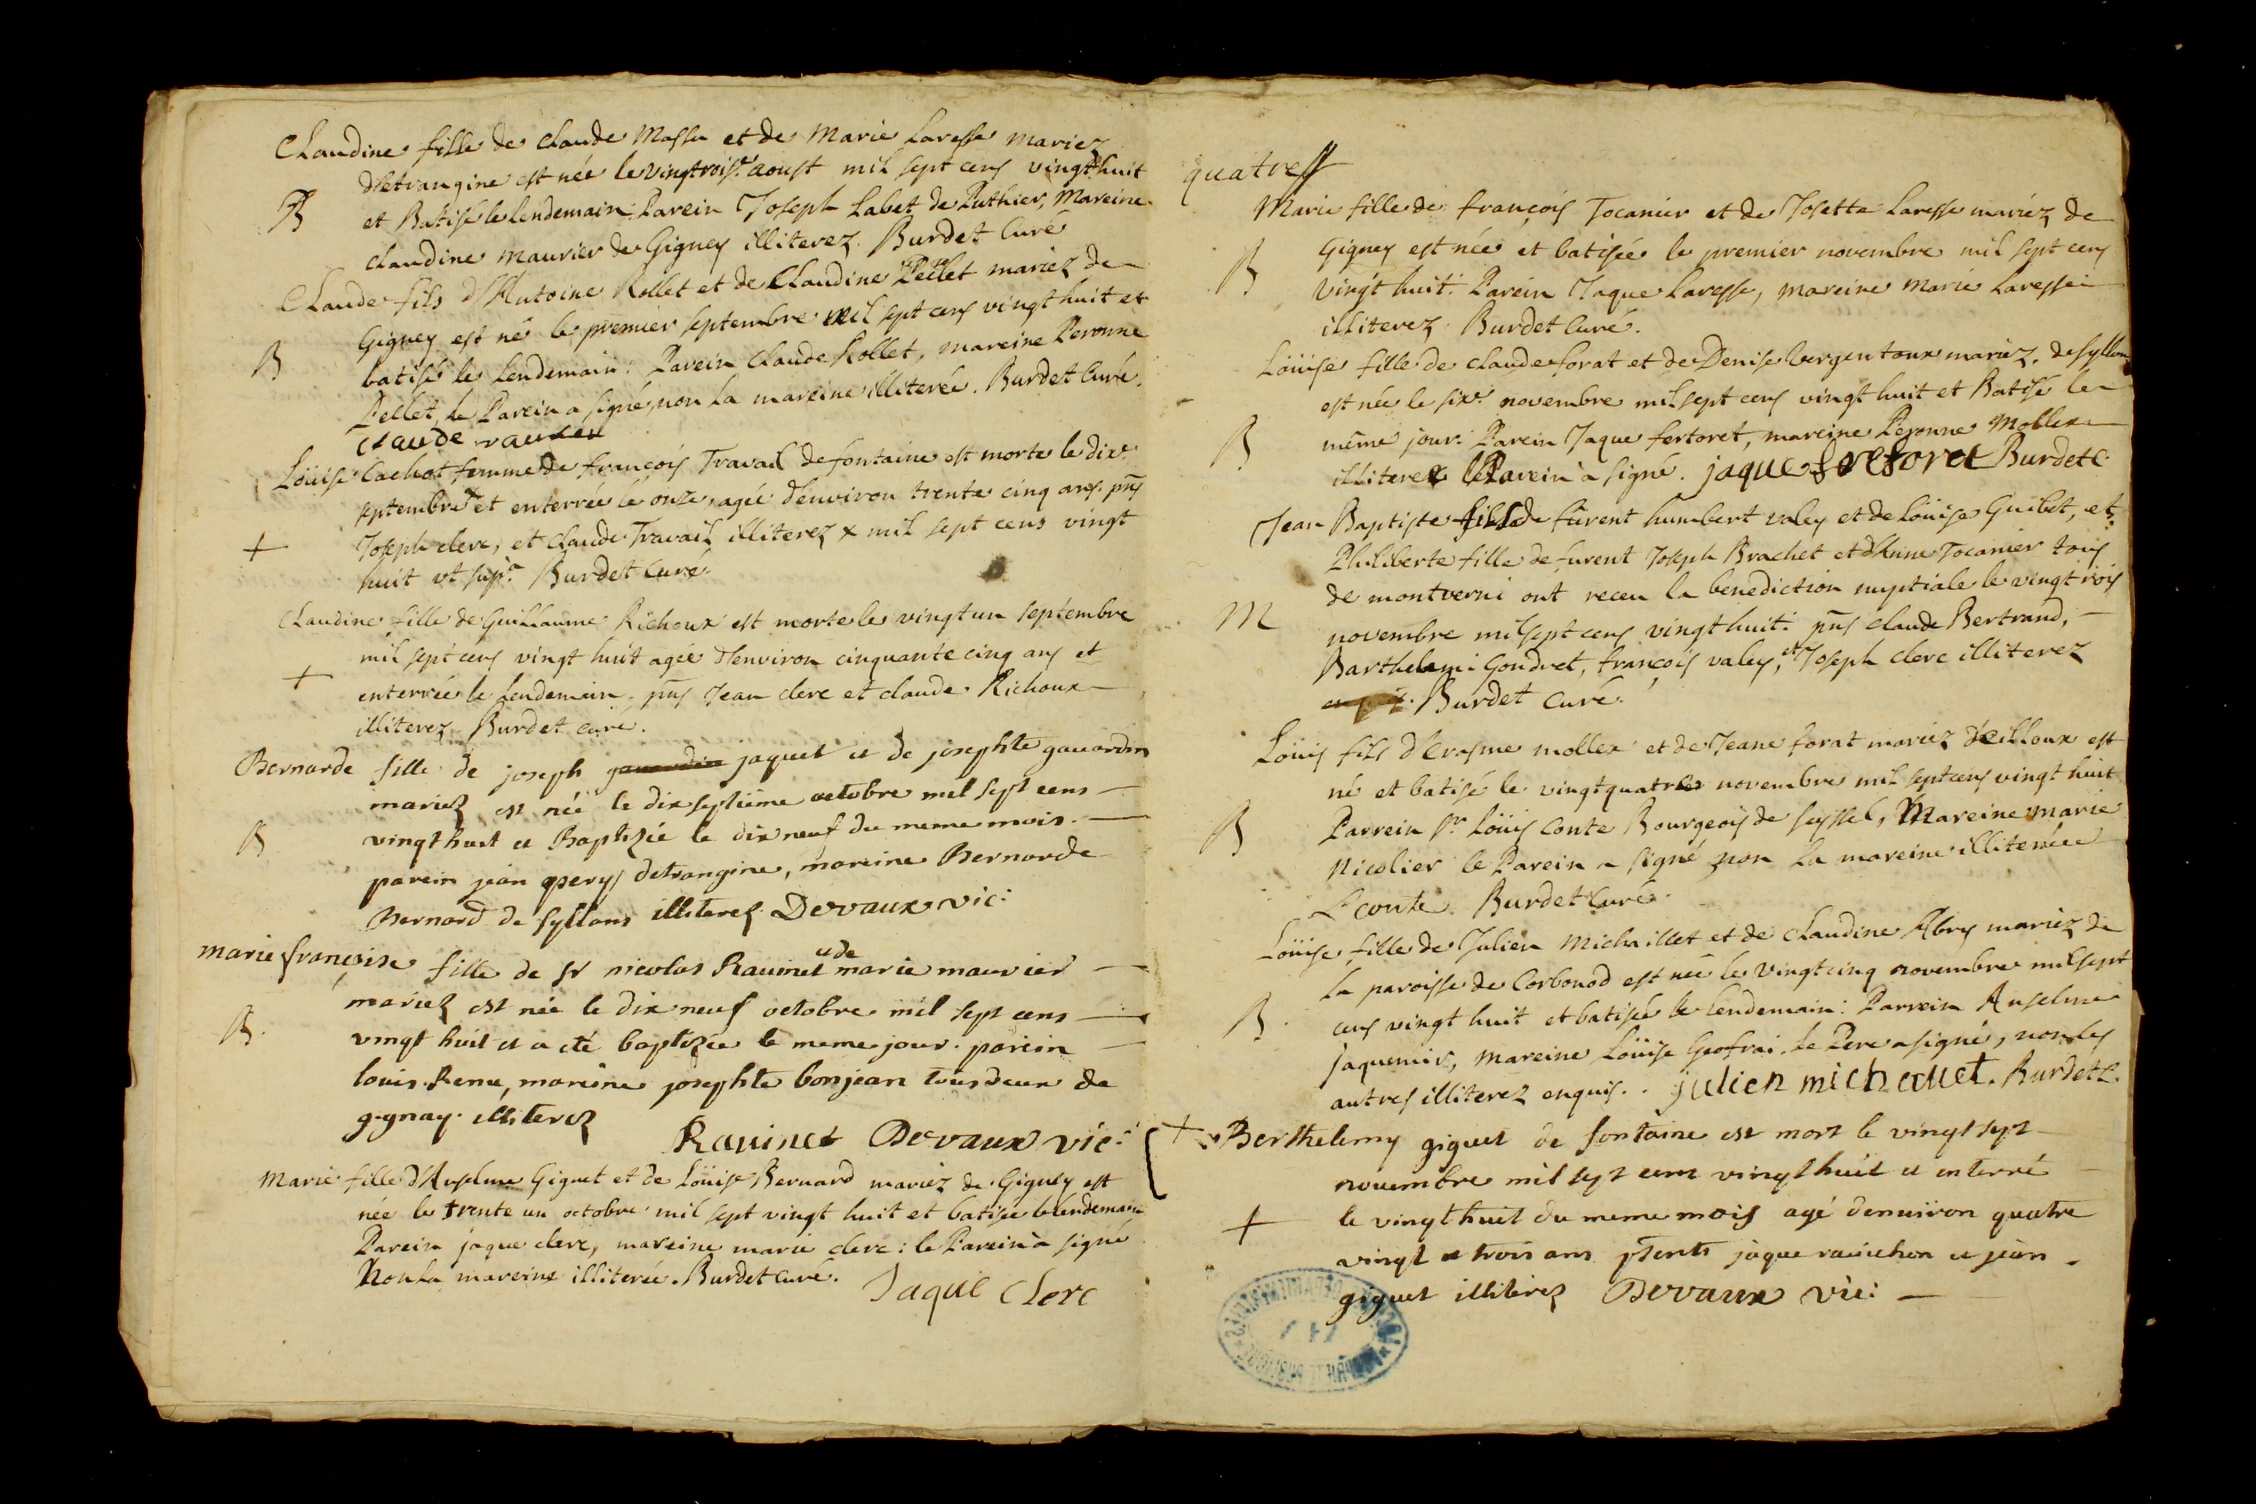 Claudine fille de claude Massu et de Marie Laresse mariez
d'Etrangine est née le vingtroise. aoust mil sept cens vingt huit
B
et Batisé le lendemain. Parein Joseph Labet de Puthier, Mareine
claudine maurier de Gigney illiterez. Burdet Curé
Claude fils d'Antoine Rollet et de Claudine Pellet mariez de
Gigney est né le premier septembre mil sept cens vingt huit et
B
batisé le lendemain: Parein Claude Rollet, mareine Peronne
Pellet, le Parein a signé, non la mareine illiterée. Burdet Curé.
claude
Loüise Cachot femme de françois Travail de fontaine est morte le dixe.
septembre et enterrée le onze, agée d'environ trente cinq ans. pns
+
Joseph clerc, et Claude Travail illiterez x mil sept cens vingt
huit vt sup.a Burdet Curé.
Claudine fille de Guillaume Richoux est morte le vingt un septembre
mil sept cens vingt huit agée d'environ cinquante cinq ans et
+
enterrée le lendemain. pns Jean clerc et claude Richoux
illiterez. Burdet curé.
Bernarde fille de joseph gauardin jaquet et de josephte gauardin
mariez est née le dix septième octobre mil sept cens
B
vingt huit et Baptizée le dix neuf du meme mois.
parein jean perys detrangine, mareine Bernarde
Bernard de syllans illiterez. Devaux vic:
marie françoise fille de sr nicolas Rauinet et de marie maurier
mariez est née le dix neuf octobre mil sept cens
B.
vingt huit et a eté baptizée le meme jour. parein
louis Rene, mareine josephte bonjean tous deux de
gignay. illiterez
Rauinet Devaux vic:
Marie fille d'Anselme Giguet et de Loüise Bernard mariez de Gigney est
née le trente un octobre mil sept vingt huit et batisée le lendemain
Parein jaque clerc, mareine marie clerc: le Parein à signé
Non la mareine illiterée. Burdet curé.
Jaque Clerc
quatre
Marie fille de françois Tocanier et de Josette Laresse mariéz de
Gigney est née et batisée le premier novembre mil sept cens
B
vingt huit. Parein Jaque Laresse, mareine Marie Laresse
illiterez. Burdet Curé.
Loüise fille de claude forat et de Denise Vergentoux mariez. de syllan
est née le sixe. novembre mil sept cens vingt huit et Batisé le
B
même jour. Parein Jaque fertoret, mareine Peronne Mollex
illiterez le Parein à signé. jaque fretoret Burdet C
Jean Baptiste fils de fûrent humbert valey et de Loüise Guibet, et
Philiberte fille de furent Joseph Brachet et d'Anne Tocanier tous
de montverni ont receu la benediction nuptiale le vingt rois
M
novembre mil sept cens vingt huit. pns Claude Bertrand,
Barthelemi Gondret, françois valey, et Joseph clerc illiterez
Burdet curé.
Loüis fils d'Erasme mollex et de Jeane forat mariez d'eilloux est
né et batisé le vingt quatre novembre mil sept cens vingt huit
B
Parrein sr Loüis Conte Bourgeois de Seyssel, Mareine marie
Nicolier le Parein a signé non la mareine illiterée
L conte. Burdet Curé.
Loüise fille de Julien Michaillet et de Claudine Abry mariez de
la paroisse de Corbonod est née le vingt cinq novembre mil sept
B.
cens vingt huit et batisée le lendemain: Parrein Anselme
jaquemir, mareine Loüise Geofrai. le Pere a signé, non les
autres illiterez enquis.. julien michallet. Burdet C.
+ Berthelemy giguet de fontaine est mort le vingt sept
nouembre mil sept cens vingt huit et enterré
+
le vingt huit du meme mois agé denuiron quatre
vingt et trois ans psents jaque rauichon et jean
giguet illiterez Devaux vic: